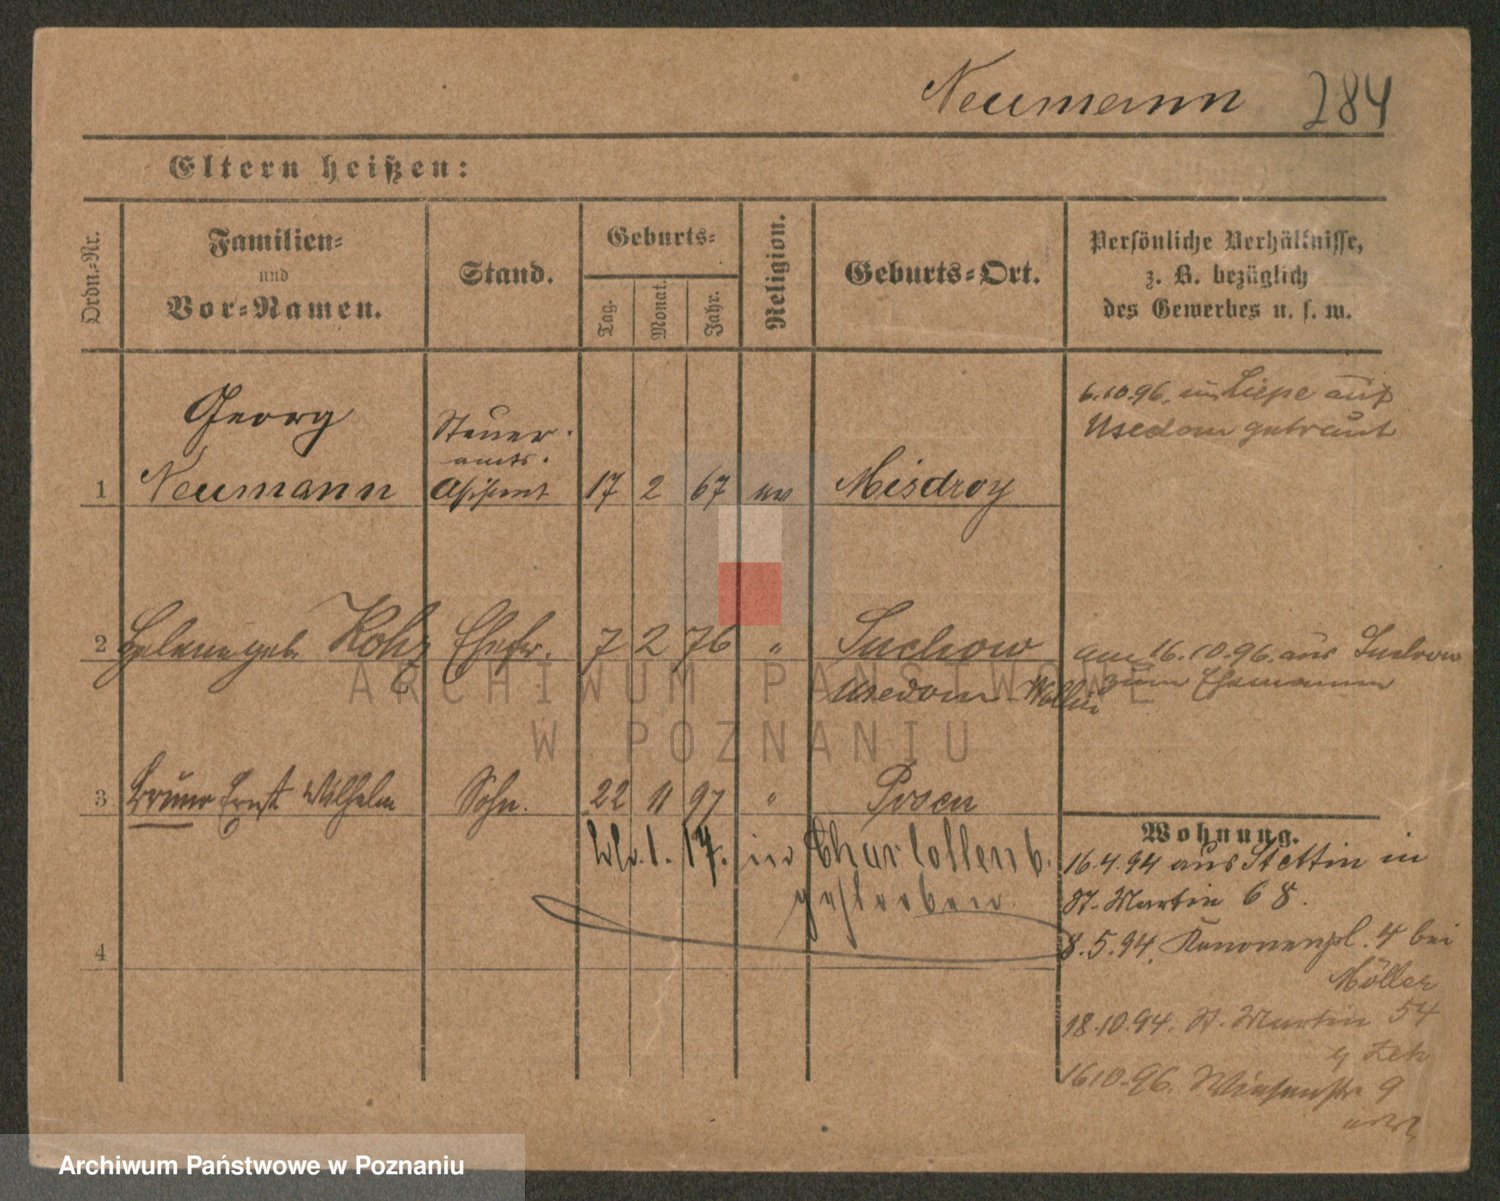 Neumann 284
Eltern heißen:
Ordn.-Nr.
Familien-
und
Vor-Namen.
Stand.
Geburts-
Tag.
Monat.
Jahr.
Religion.
Geburts-Ort.
Persönliche Verhältnisse,
z. B. bezüglich
des Gewerbes u. s. w.
Georg
Steuer-
amts-
1 Neumann Assistent 17 2 67 ev Misdroy
6.10.96. in Liepe auf
Usedom getraut
2 Helene geb. Ehefr. 7 2 76 " Suchow
Usedom-Wollin
am 16.10.96. aus Suckow
zum Ehemann
3 Bruno Ernst Wilhelm Sohn. 22 11 97 " Posen
1. 17. in Charlottenb.
gestorben
4
Wohnung.
16.4.94 aus Stettin in
St. Martin 68.
8.5.94. Kanonenpl. 4 bei
Möller
18.10.94. St. Martin 54
16 10.96. Wiesenstr 9
ARCHIWUM PAŃSTWOWE
W POZNANIU
Archiwum Państwowe w Poznaniu